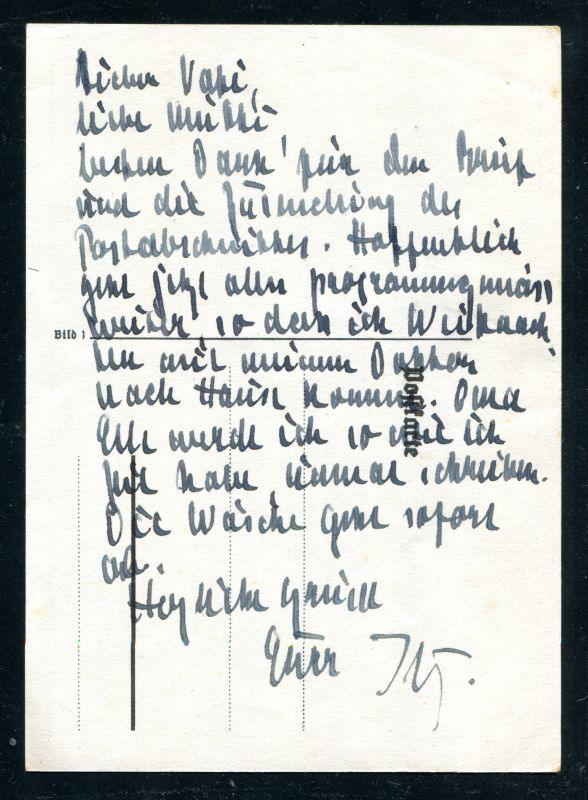 Lieber Vati,
liebe Mutti
besten Dank für den Brief
und die Zusendung des
Postabschnittes. Hoffentlich
geht jetzt alles programmgemäss
weiter, so dass ich Weihnach-
Bild 1
ten mit meinem Doktor
nach Hause komme. Oma
Postkarte
Else werde ich so wie ich
Zeit habe, einmal schreiben.
Die Wäsche geht sofort
ab.
Herzliche Grüsse
Euer